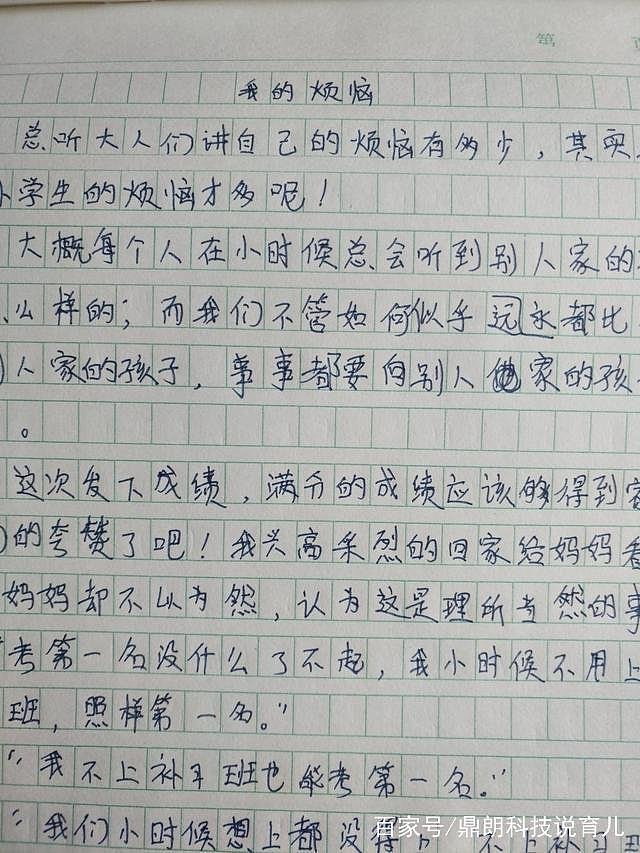 第
我的烦恼
总听大人们讲自己的烦恼有多少，其实
小学生的烦恼才多呢！
大概每个人在小时候总会听到别人家的
么样的；而我们不管如何似乎远永都比
人家的孩子，事事都要向别人家的孩
。
这次发下成绩，满分的成绩应该够得到家
的夸赞了吧！我兴高采烈的回家给妈妈看
妈妈却不以为然，认为这是理所当然的事
考第一名没什么了不起，我小时候不用上
班，照样第一名。”
“我不上补习班也能考第一名。”
“我们小时候想上都没得上 不上补习班
百家号/鼎朗科技说育儿